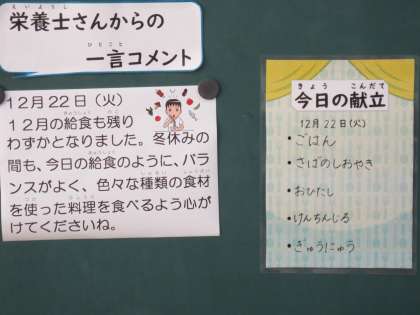 栄養士さんからの
一言コメント
12月22日（火）
12月の給食も残り
わずかとなりました。冬休みの
間も、今日の給食のように、バラ
ンスがよく、色々な種類の食材
を使った料理を食べるよう心が
けてくださいね。
今日の献立
12月22日(火)
・ごはん
・さばのしおやき
・おひたし
・けんちんじる
・ぎゅうにゅう